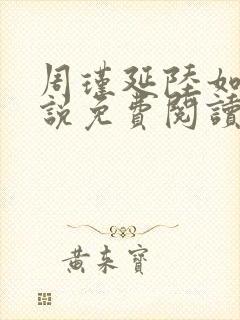 周瑾延陸如
說免費閱讀
黃來寶